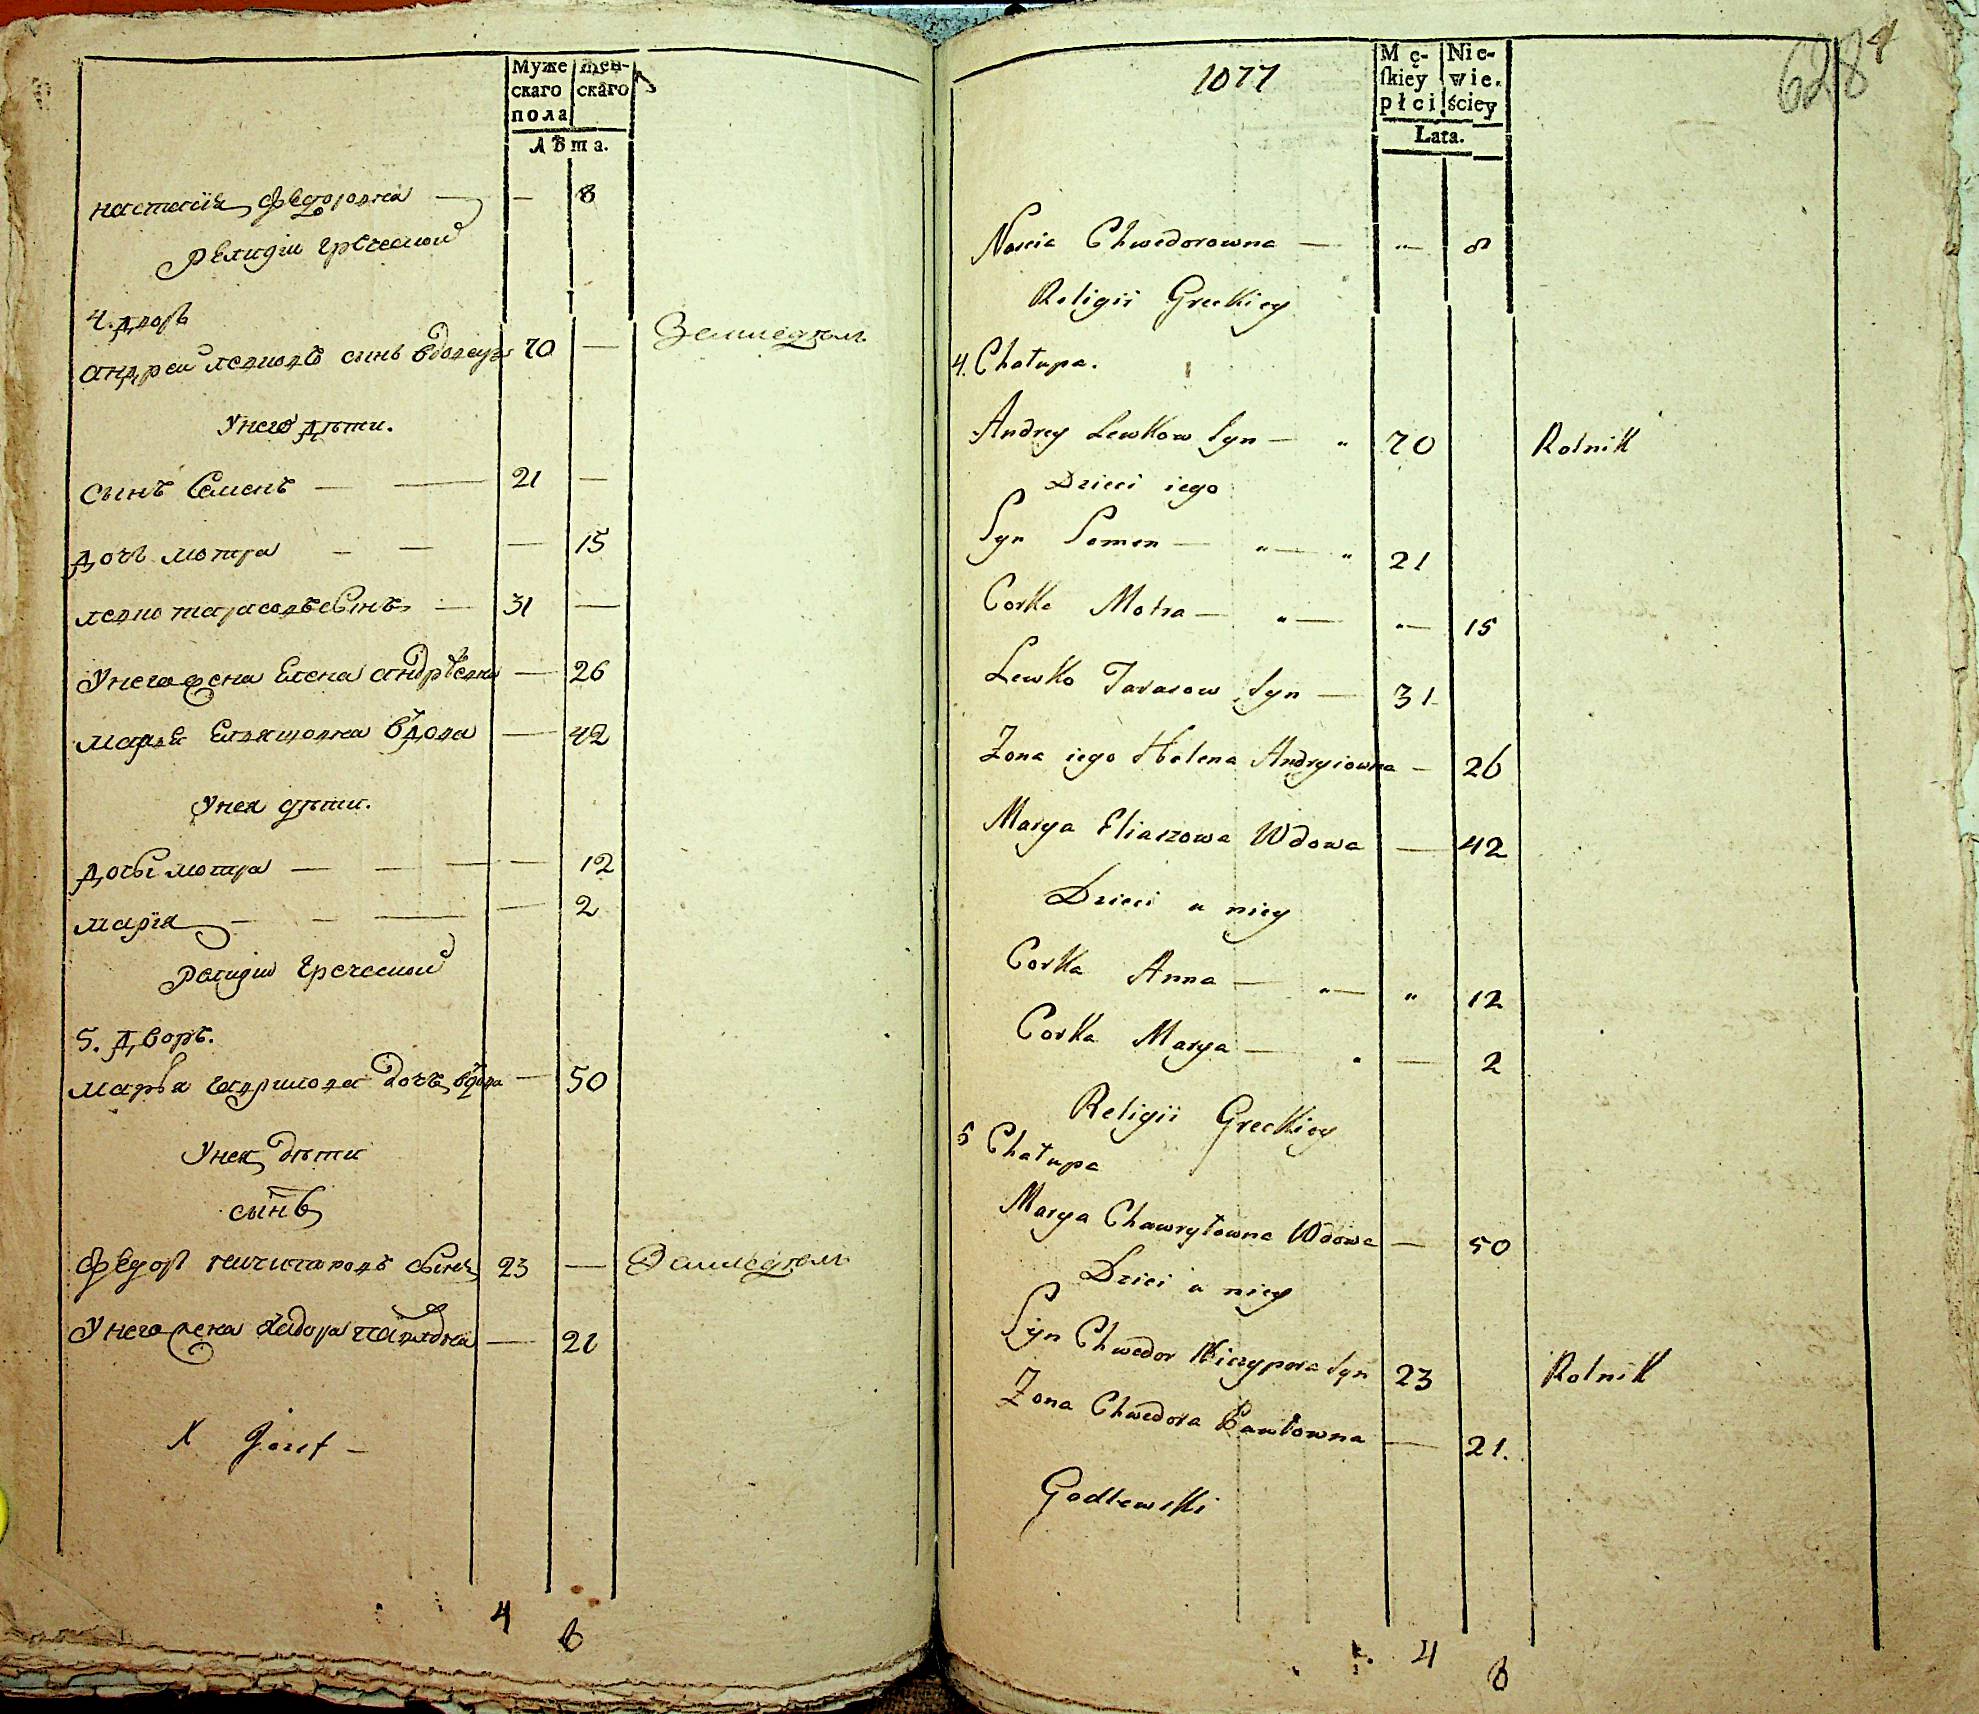 Муже
скаго
пола
Жен-
скаго
Лѣта.
настасія Федоровна — — 8
Религіи Греческой
4. дворъ
андрей левковъ сынъ вдовецъ 70 — Земледѣлъ
У него дѣти.
сынъ Семенъ — — 21 —
дочь мотра — — — 15
левко тарасовъ сынъ — 31 —
У него жена Елена андрѣевна — 26
марья Еліяшовна вдова — 42
У нея дѣти.
дочь мотра — — — — 12
марія — — — — 2
Религіи Греческой
5. дворъ.
марья гаврилова дочь вдова — 50
У нея дѣти
сынъ
Федоръ ничипоровъ сынъ 23 — Земледѣлъ
У него жена хадора павловна — 21
X Jozef —
4 6
1077
628
4
Mę-
skiey
płci
Nie-
wie-
ściey
Lata.
Nascia Chwedorowna — „— 8
Religii Greckiey
4. Chałupa.
Andrey Lewkow Syn — „ 70 Rolnik
Dzieci iego
Syn Semen — „— „ 21
Corka Motra — „— „— 15
Lewko Tarasow Syn — 31
Zona iego Helena Andryiowna — 26
Marya Eliaszowa Wdowa — 42
Dzieci u niey
Corka Anna — „— „ 12
Corka Marya — „ — 2
Religii Greckiey
5 Chałupa
Marya Chawryłowna Wdowa — 50
Dzieci u niey
Syn Chwedor Niczypora Syn 23 Rolnik
Zona Chwedora Pawłowna — 21.
Godlewski
4 6